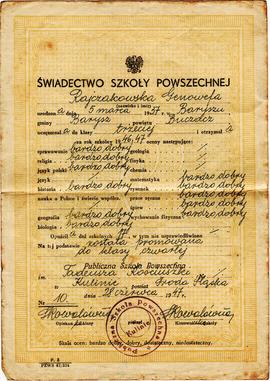 ŚWIADECTWO SZKOŁY POWSZECHNEJ
Rajczakowska Genowefa
(nazwisko i imię)
urodzona dn. 5 marca 1937 w Baryszu
gminy Barysz powiatu Buczacz
uczęszczał a do klasy trzeciej i otrzymał a
za rok szkolny 1946/47 oceny następujące:
sprawowanie bardzo dobry geologia
religia bardzo dobry fizyka
język polski bardzo dobry chemia
język matematyka bardzo dobry
historia bardzo dobry rysunek bardzo dobry
nauka o Polsce i świecie współcz. prace ręczne bardzo dobry
geografia bardzo dobry śpiew bardzo dobry
biologia bardzo dobry wychowanie fizyczne bardzo dobry
Opuścił a dni szkolnych w tym nie usprawiedliwiono
Na tej podstawie została promowana
do klasy czwartej
Publiczna Szkoła Powszechna
Tadeusza Kościuszki
Kulinie powiat Środa Śląska
Nr 10 dnia 28 czerwca 1947.
Kowalowna Kowalowna
Opiekun klasy Kierownik szkoły
Publiczna Szkoła Powszechna
Kulinie
Skala ocen: bardzo dobry, dobry, dostateczny, niedostateczny.